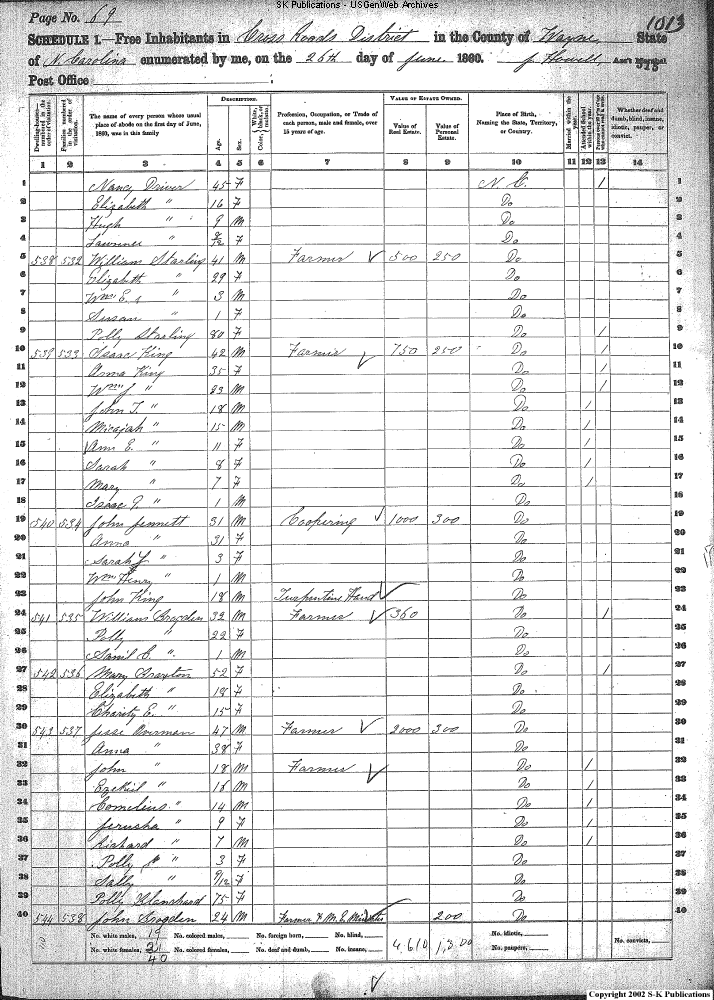 SK Publications - USGenWeb Archives
Page No. 69
1013
SCHEDULE 1.—Free Inhabitants in Cross Roads District in the County of Wayne State
of N. Carolina enumerated by me, on the 26th day of June 1860. J Howell Ass't Marshal
Post Office
Dwelling-houses numbered in the order of visitation. Families numbered in the order of visitation. The name of every person whose usual place of abode on the first day of June, 1860, was in this family DESCRIPTION. Age. Sex. Color, White, black, or mulatto. Profession, Occupation, or Trade of each person, male and female, over 15 years of age. VALUE OF ESTATE OWNED. Value of Real Estate. Value of Personal Estate. Place of Birth, Naming the State, Territory, or Country. Married within the year. Attended School within the year. Whether deaf and dumb, blind, insane, idiotic, pauper, or convict.
1 2 3 4 5 6 7 8 9 10 11 12 13 14
1 Nancy Driver 45 F N. C. / 1
2 Elizabeth " 16 F Do 2
3 Hugh " 9 M Do 3
4 " 8/12 F Do 4
5 538 532 William Starling 41 M Farmer 500 250 Do 5
6 Elizabeth " 29 F Do 6
7 Wm E. " 3 M Do 7
8 Susan " 1 F Do 8
9 Polly Starling 80 F Do / 9
10 539 533 Isaac King 42 M Farmer 750 250 Do / 10
11 Anna King 35 F Do / 11
12 Wm J. " 23 M Do / 12
13 John T. " 18 M Do / 13
14 Micajah " 15 M Do / 14
15 Ann E. " 11 F Do / 15
16 Sarah " 8 F Do / 16
17 Mary " 7 F Do / 17
18 Isaac P. " 1 M Do 18
19 540 534 John Jennett 31 M Coopering 1000 300 Do 19
20 Anna " 31 F Do 20
21 Sarah J " 3 F Do 21
22 Wm Henry " 1 M Do 22
23 John King 18 M Turpentine Hand Do 23
24 541 535 William Brogden 32 M Farmer 360 Do / 24
25 Polly " 22 F Do 25
26 C. " 1 M Do 26
27 542 536 Mary 52 F Do / 27
28 Elizabeth " 18 F Do 28
29 Charity E. " 15 F Do 29
30 543 537 Jesse Overman 47 M Farmer 2000 300 Do 30
31 Anna " 38 F Do 31
32 John " 18 M Farmer Do / 32
33 Ezekiel " 16 M Do / 33
34 Cornelius " 14 M Do / 34
35 Jerusha " 9 F Do / 35
36 Richard " 7 M Do / 36
37 Polly " 3 F Do 37
38 Sally " 9/12 F Do 38
39 Polly Blanchard 75 F Do 39
40 544 538 John Brogden 24 M Farmer & M. E. Minister 200 Do 40
No. white males, 19 No. colored males, No. foreign born, No. blind, No. idiotic,
No. white females, 21 No. colored females, No. deaf and dumb, No. insane, 4610 1,300 No. paupers, No. convicts,
40
Copyright 2002 S-K Publications